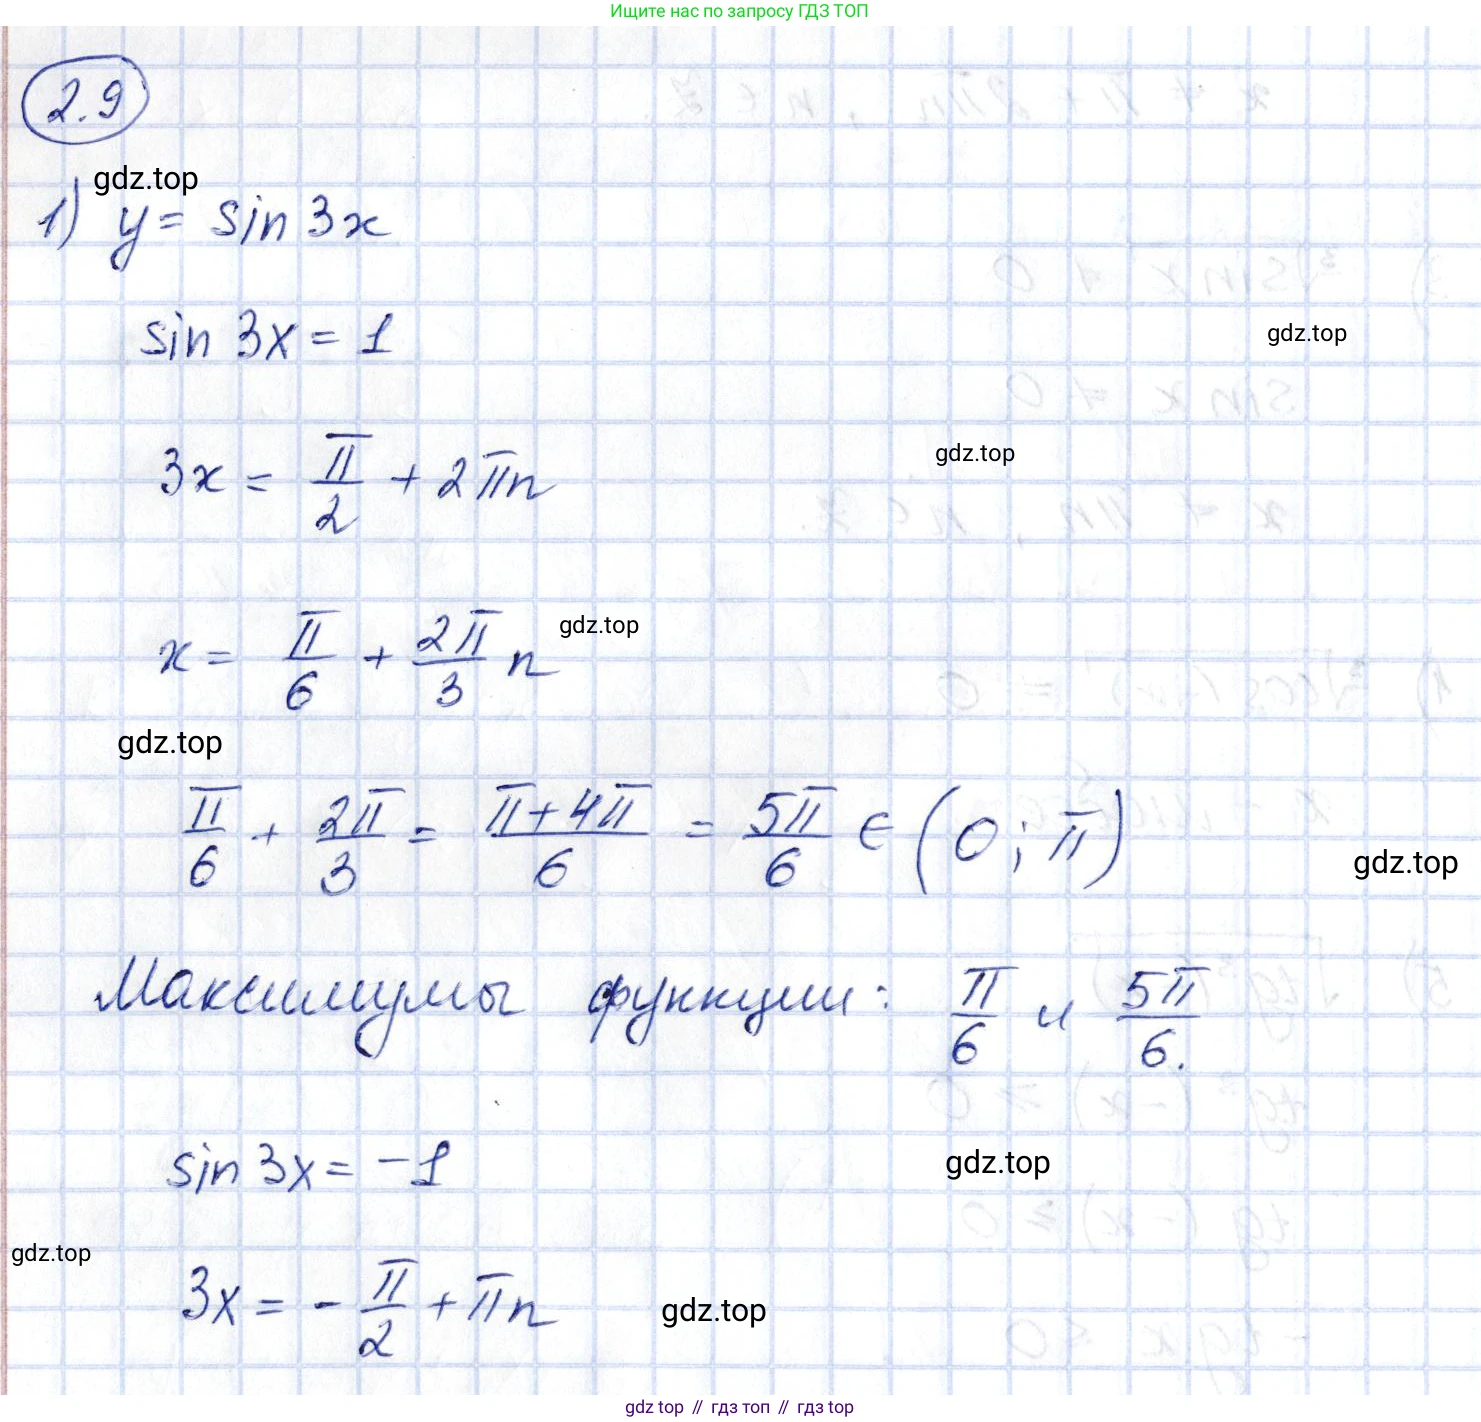 Ищите нас по запросу ГДЗ ТОП
2.9
gdz.top
1) y = sin 3x
sin 3x = 1
gdz.top
3x = π/2 + 2πn
gdz.top
x = π/6 + 2π/3 n
gdz.top
gdz.top
π/6 + 2π/3 = π+4π/6 = 5π/6 ∈ (0; π)
gdz.top
Максимумы функции: π/6 и 5π/6.
sin 3x = -1
gdz.top
gdz.top
3x = - π/2 + πn
gdz.top
gdz top // гдз топ // гдз top